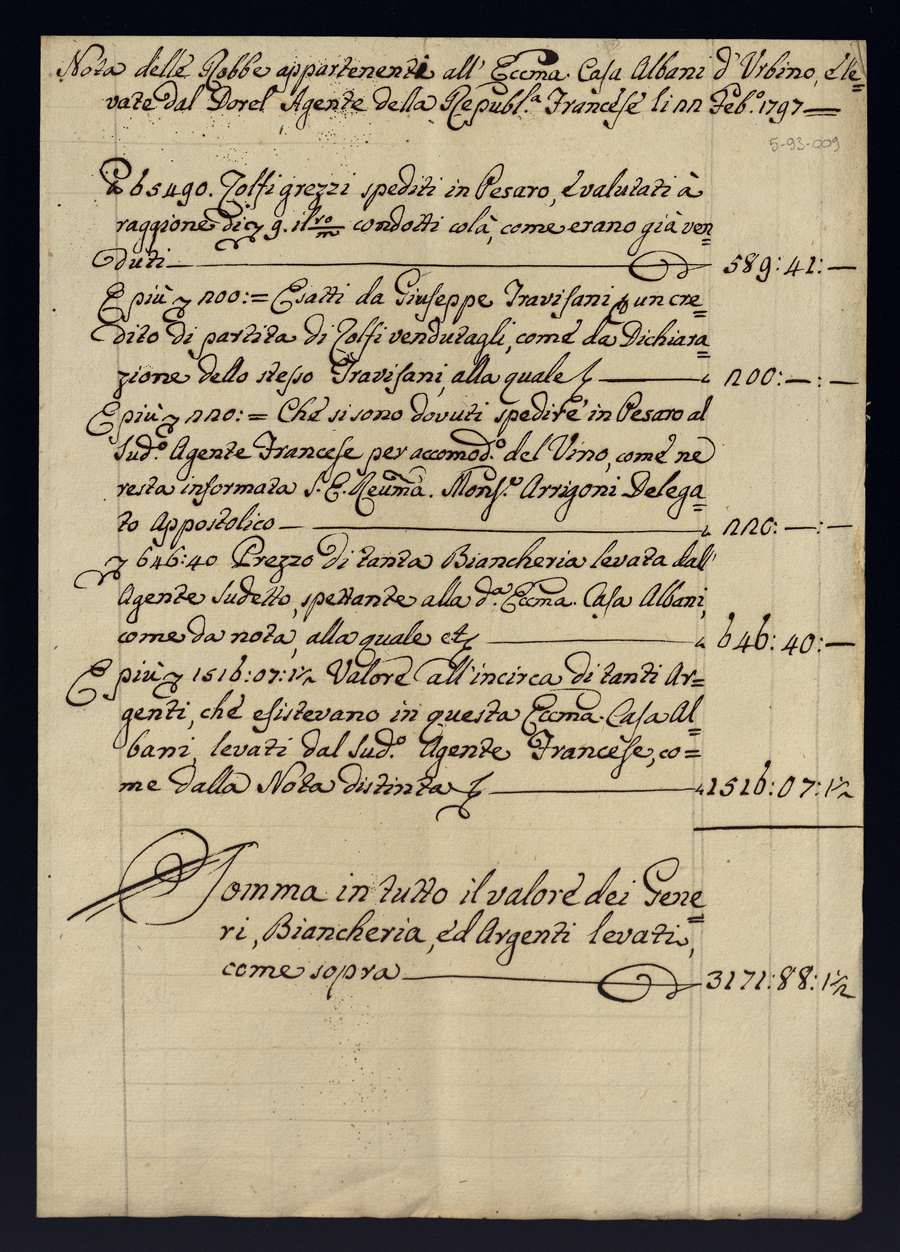 Nota delle Robbe appartenenti all' Eccma. Casa Albani d'Urbino, e' le=
vate dal Dorel Agente della Republ.a Francese li 22 Feb.o 1797 =
5-93-009
65490. Zolfi grezzi spediti in Pesaro, e valutati à
raggione di 9. il ro/m condotti colà, come erano già ven=
duti — 589:41:—
E più 200:= Esatti da Giuseppe Travisani un cre=
dito di partita di Zolfi vendutagli, come da Dichiara=
zione dello stesso Travisani, alla quale — 200:—:—
E più 220:= Che si sono dovuti spedire in Pesaro al
Sud.o Agente Francese per accomod.o del Vino, come ne
resta informata S. E. Reuma. Mons.e Arrigoni Delega=
to Appostolico — 220:—:—
646:40 Prezzo di tanta Biancheria levata dall'
Agente Sudetto, spettante alla d.a Eccma. Casa Albani,
come da nota, alla quale et — 646:40:—
E più 1516:07:½ Valore all'incirca di tanti Ar=
genti, che esistevano in questa Eccma. Casa Al=
bani, levati dal Sud.o Agente Francese, co=
me dalla Nota distinta — 1516:07:½
Somma in tutto il valore dei Gene=
ri, Biancheria, ed Argenti levati,
come sopra — 3171:88:½